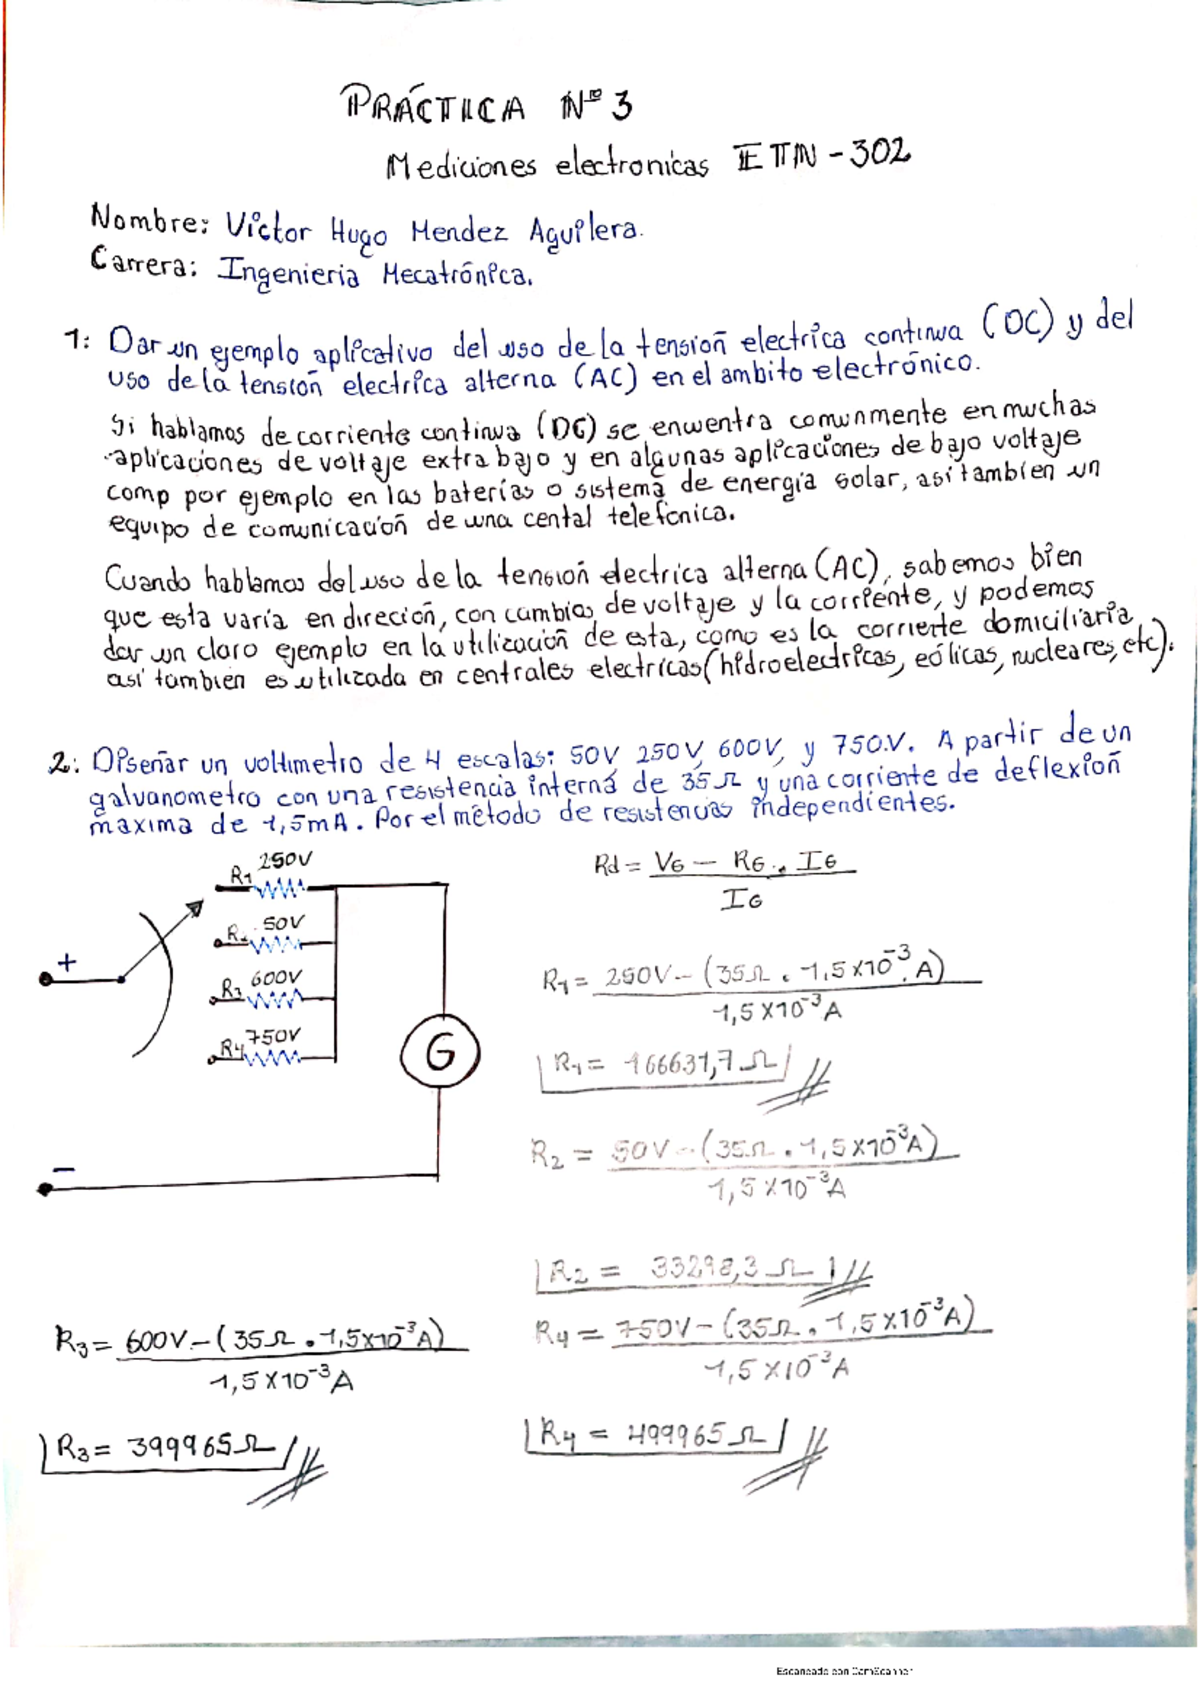 PRÁCTICA Nº 3
Mediciones electronicas ETN - 302
Nombre: Victor Hugo Mendez Aguilera.
Carrera: Ingenieria Mecatrónica.
1: Dar un ejemplo aplicativo del uso de la tensión electrica continua (DC) y del
uso de la tensión electrica alterna (AC) en el ambito electrónico.
Si hablamos de corriente continua (DC) se encuentra comunmente en muchas
aplicaciones de voltaje extra bajo y en algunas aplicaciones de bajo voltaje
como por ejemplo en las baterías o sistema de energía solar, así tambien un
equipo de comunicación de una cental telefonica.
Cuando hablamos del uso de la tensión electrica alterna (AC), sabemos bien
que esta varía en direción, con cambios de voltaje y la corriente, y podemos
dar un claro ejemplo en la utilización de esta, como es la corriente domiciliaria,
así tambien es utilizada en centrales electricas (hidroelectricas, eólicas, nucleares, etc).
2: Diseñar un voltimetro de 4 escalas: 50V 250V, 600V, y 750.V. A partir de un
galvanometro con una resistencia interna de 35Ω y una corriente de deflexión
maxima de 1,5mA. Por el método de resistencias independientes.
R1 250V
R2 50V
R3 600V
R4 750V
+
G
-
Rd = VG - RG . IG
IG
R1 = 250V - (35Ω . 1,5x10^-3 A)
1,5x10^-3 A
R1 = 166631,7 Ω
R2 = 50V - (35Ω . 1,5x10^-3 A)
1,5x10^-3 A
R2 = 33298,3 Ω
R3 = 600V - (35Ω . 1,5x10^-3 A)
1,5x10^-3 A
R3 = 399965 Ω
R4 = 750V - (35Ω . 1,5x10^-3 A)
1,5x10^-3 A
R4 = 499965 Ω
Escaneado con CamScanner